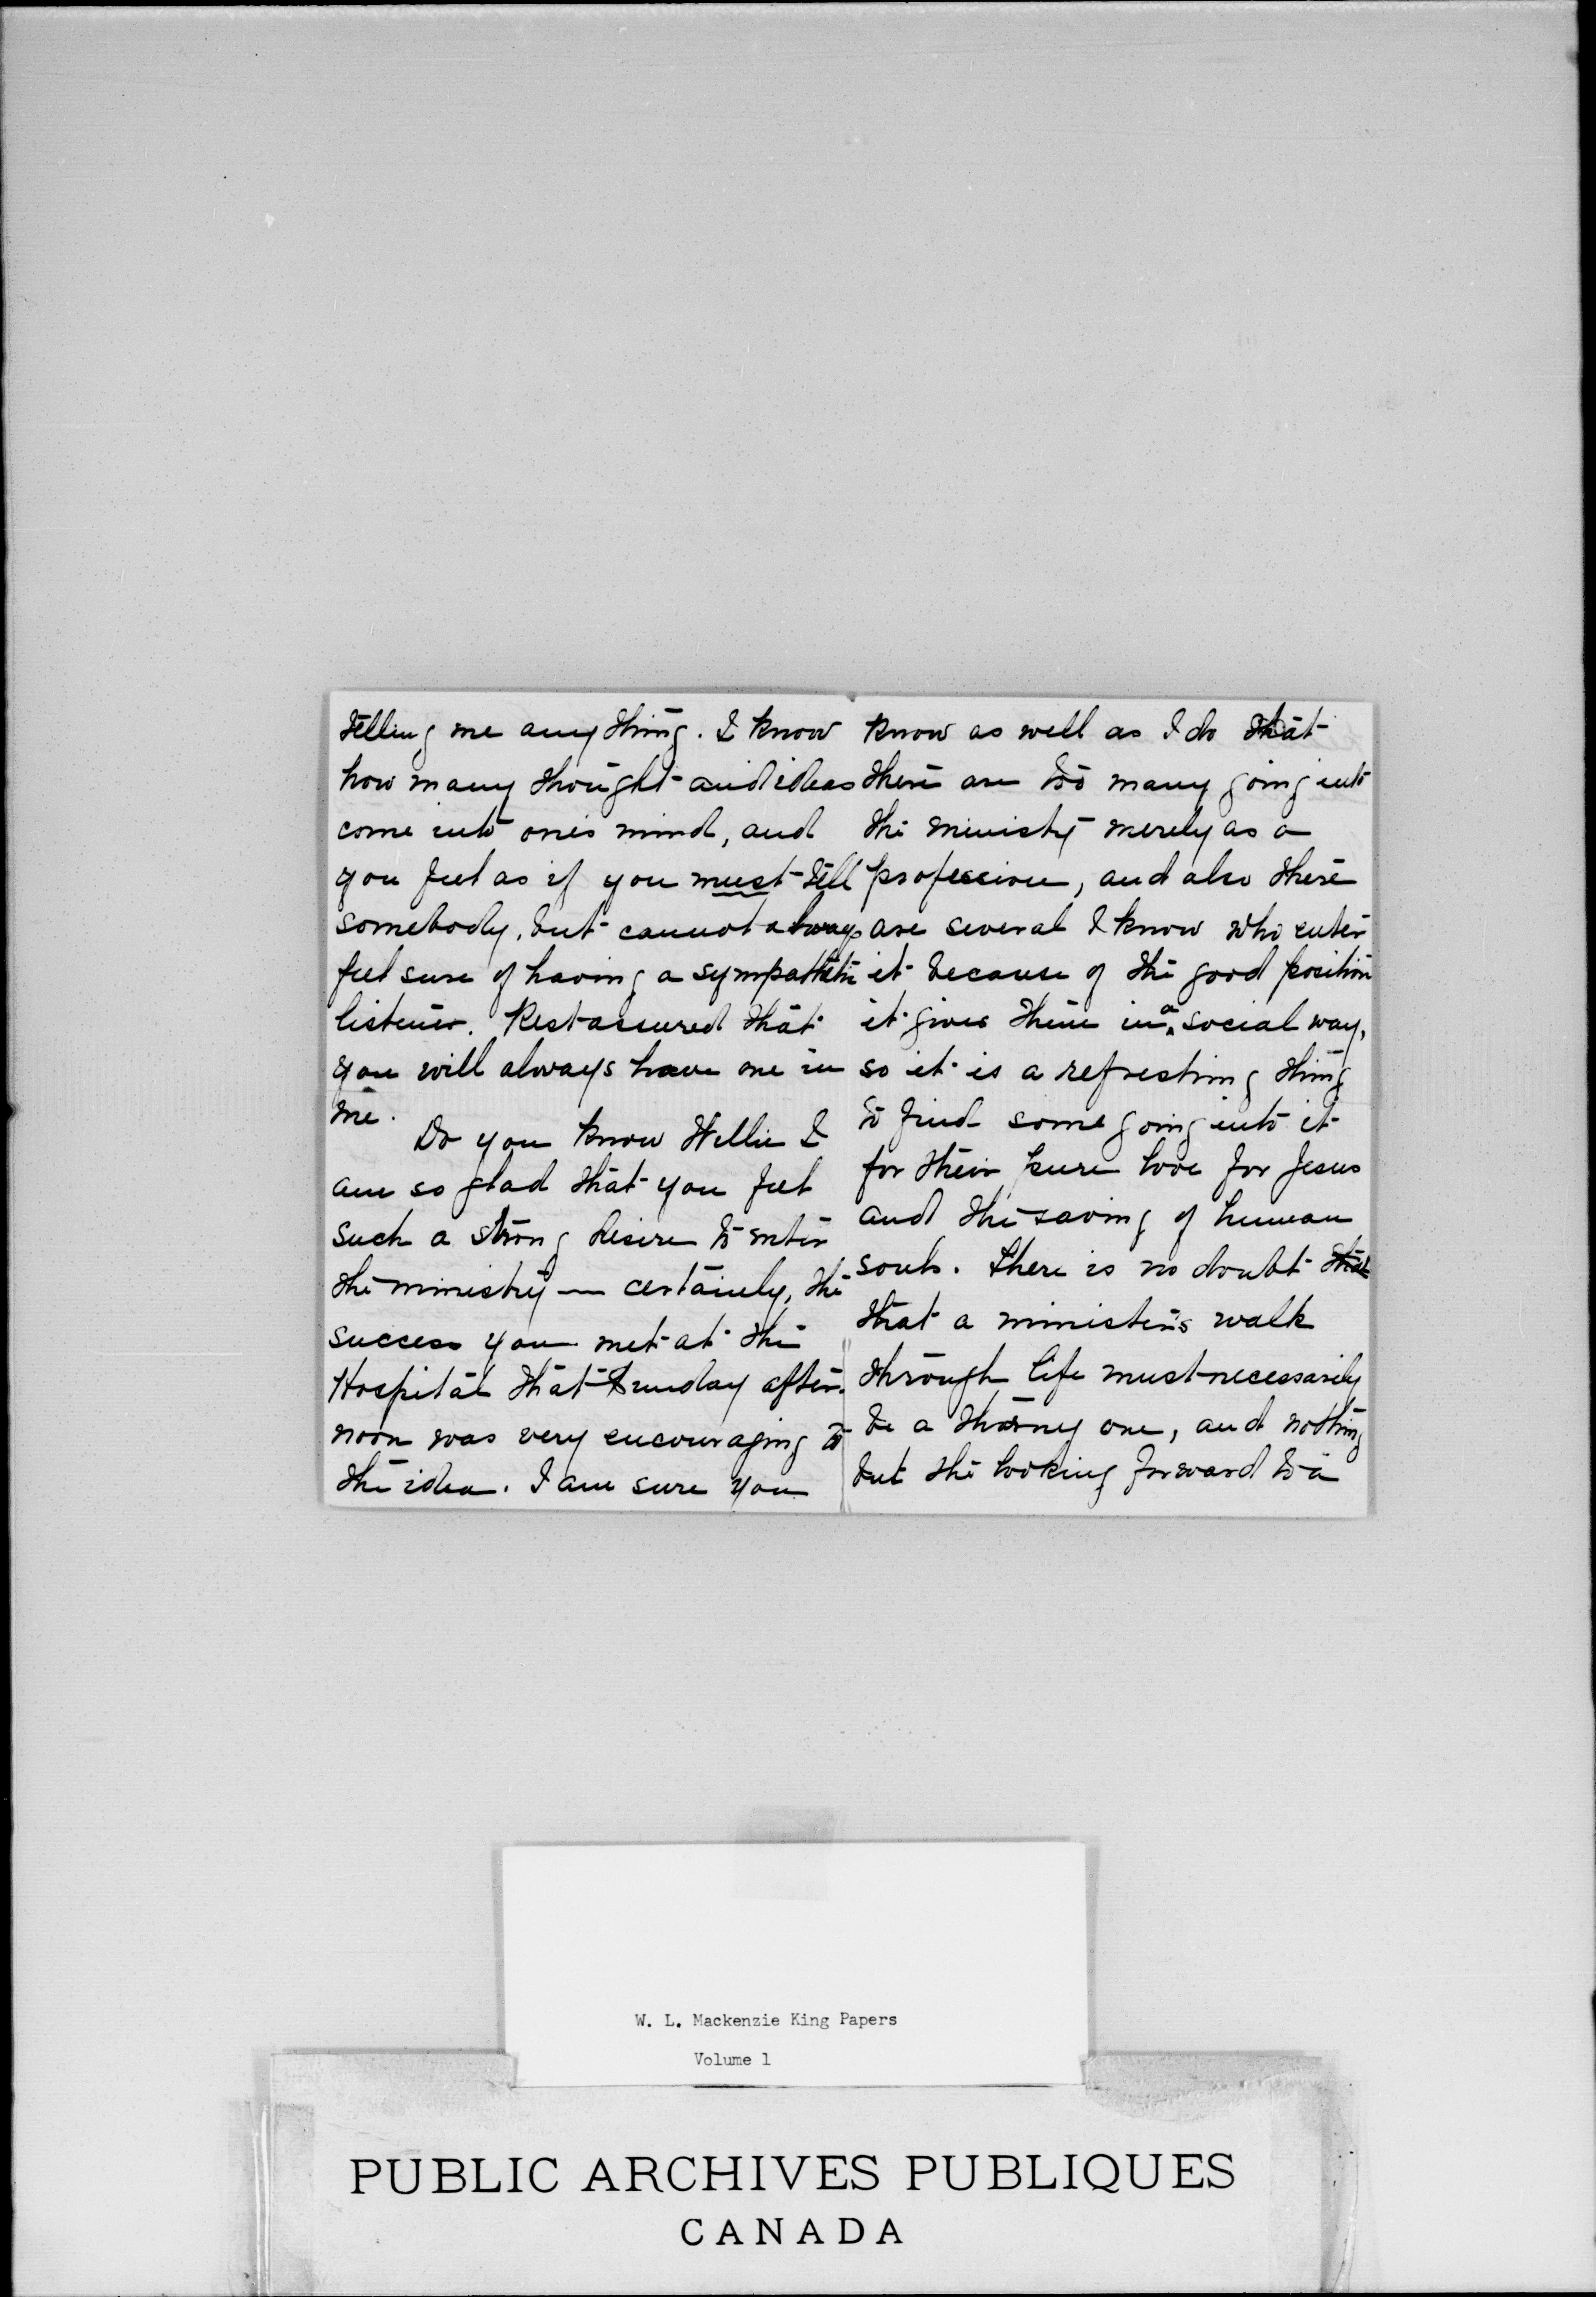 telling me any thing. I know
how many thought and ideas
come into one's mind, and
you feel as if you must tell
somebody, but cannot always
feel sure of having a sympathetic
listener. Rest assured that
you will always have one in
me.
Do you know Willie I
am so glad that you feel
such a strong desire to enter
the ministry — certainly, the
success you met at the
Hospital that Sunday after-
noon was very encouraging to
the idea. I am sure you
know as well as I do that
there are too many going into
the ministry merely as a
profession, and also there
are several I know who enter
it because of the good position
it gives them in a social way,
so it is a refreshing thing
to find some going into it
for their pure love for Jesus
and the saving of human
souls. There is no doubt that
that a minister's walk
through life must necessarily
be a thorny one, and nothing
but the looking forward to a
W. L. Mackenzie King Papers
Volume 1
PUBLIC ARCHIVES PUBLIQUES
CANADA